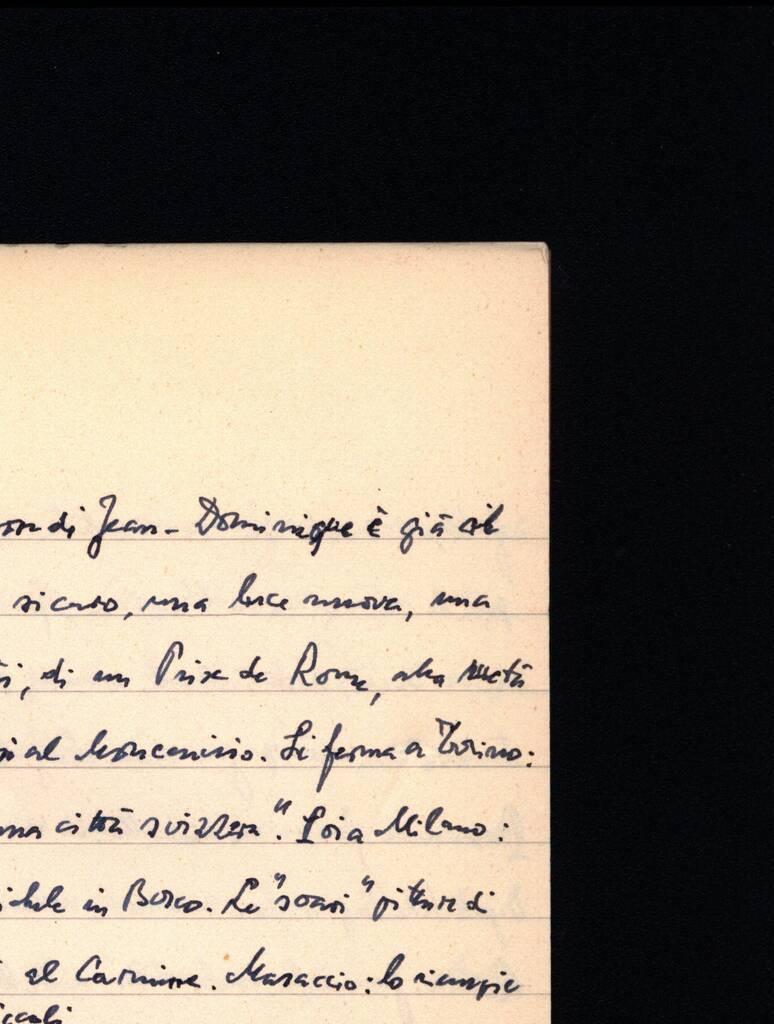 di Jean-Dominique è già il
sicuro, una luce nuova, una
di un Prix de Rome, alla metà
al Moncenisio. Si ferma a Torino:
una città svizzera". Poi a Milano:
in Bosco. Le "soavi" pitture di
al Carmine. Masaccio: lo